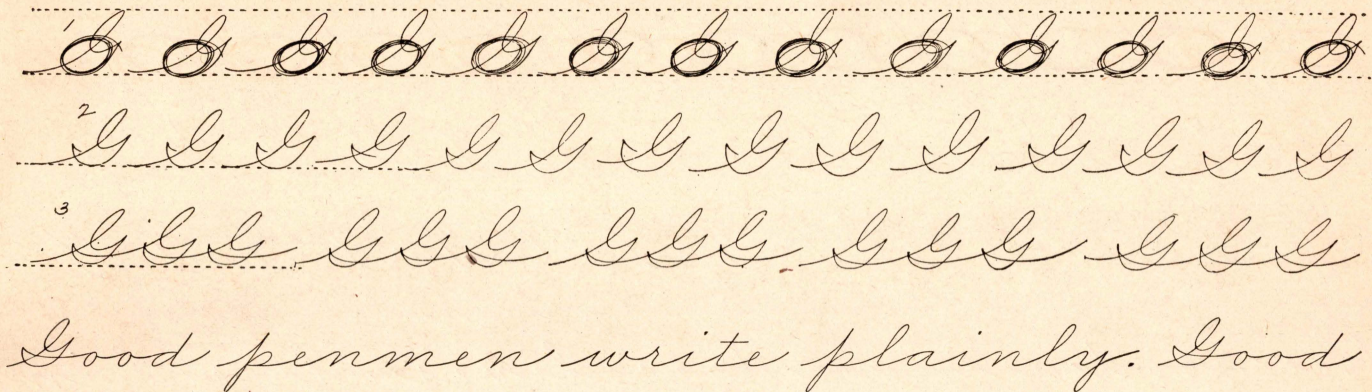 1 G G G G G G G G G G G G G
2 G G G G G G G G G G G G G G
3 GGG GGG GGG GGG GGG
Good penmen write plainly. Good